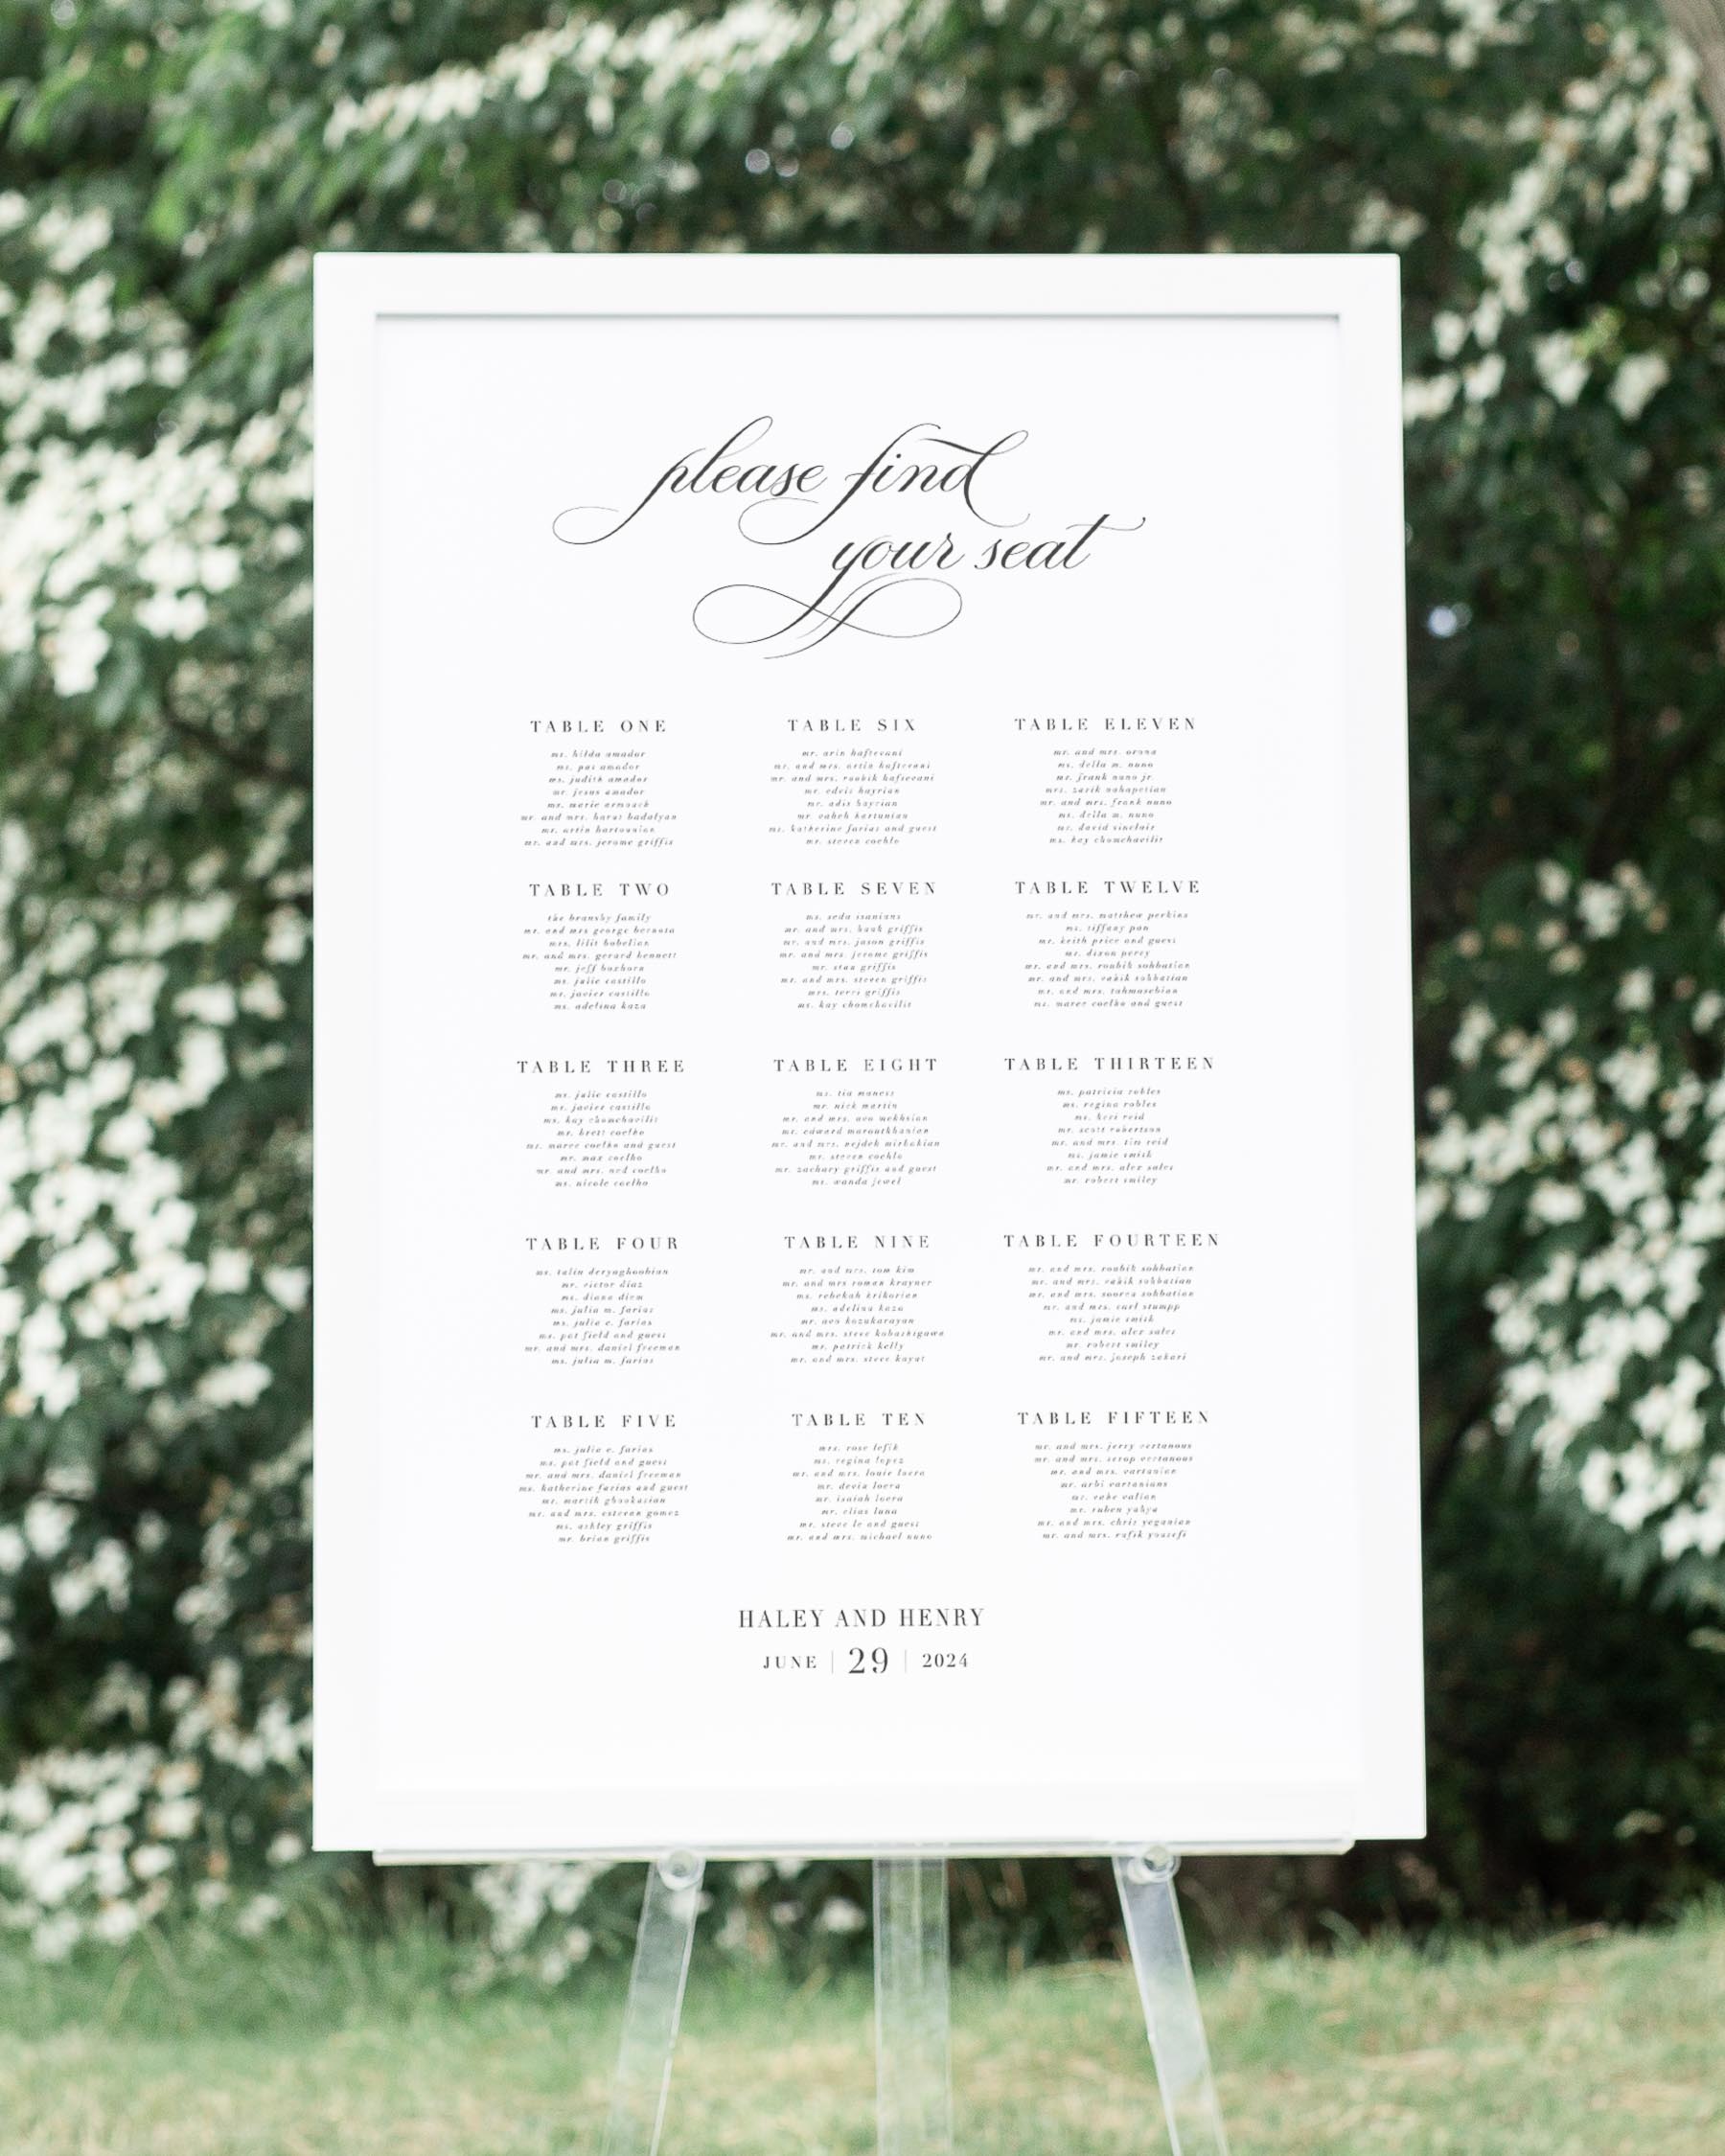 please find
your seat
TABLE ONE
ms. hilda amador
ms. pat amador
ms. judith amador
mr. jesus amador
mr. and mrs. badalyan
mr. artin hartounian
mr. and mrs. jerome griffis
TABLE TWO
the bransby family
mr. and mrs george
mrs. lilit babelian
mr. and mrs. gerard bennett
mr. jeff boxhorn
ms. julie castillo
mr. javier castillo
ms. adelina kaza
TABLE THREE
ms. julie castillo
mr. javier castillo
ms. kay chomchavilit
mr. brett coelho
ms. maree coelho and guest
mr. max coelho
mr. and mrs. ned coelho
ms. nicole coelho
TABLE FOUR
ms. talin deryaghoobian
mr. victor diaz
ms. diane diem
ms. julia m. farias
ms. julie e. farias
ms. pat field and guest
mr. and mrs. daniel freeman
ms. julia m. farias
TABLE FIVE
ms. julie e. farias
ms. pat field and guest
mr. and mrs. daniel freeman
ms. katherine farias and guest
ms. marsik ghookasian
mr. and mrs. estevan gomez
ms. ashley griffis
mr. brian griffis
TABLE SIX
mr. arin haftevani
mr. and mrs. artin haftevani
mr. and mrs. roubik haftevani
mr. edvis hayrian
mr. adis hayrian
mr. vaheh hartunian
ms. katherine farias and guest
mr. steven coehlo
TABLE SEVEN
ms. seda issanians
mr. and mrs. hank griffis
mr. and mrs. jason griffis
mr. and mrs. jerome griffis
mr. stan griffis
mr. and mrs. steven griffis
mrs. terri griffis
ms. kay chomchavilit
TABLE EIGHT
ms. tia maness
mr. nick martin
mr. and mrs. avo mekhsian
ms. edward maroutkhanian
mr. and mrs. nejdek mirkakian
mr. steven coehlo
mr. zachary griffis and guest
ms. wanda jewel
TABLE NINE
mr. and mrs. tom kim
mr. and mrs roman krayner
ms. rebekah krikorian
ms. adelina kaza
mr. avo kazukarayan
mr. and mrs. steve kobashigawa
mr. patrick kelly
mr. and mrs. steve kayat
TABLE TEN
mrs. rose lefik
ms. regina lopez
mr. and mrs. louie loera
mr. devia loera
mr. isaiah loera
mr. elias luna
mr. steve le and guest
mr. and mrs. michael nuno
TABLE ELEVEN
mr. and mrs. orona
ms. della m. nuno
mr. frank nuno jr.
mrs. zarik nahapetian
mr. and mrs. frank nuno
ms. della m. nuno
ms. david sinclair
ms. kay chomchavilit
TABLE TWELVE
mr. and mrs. matthew perkins
ms. tiffany pon
mr. keith price and guest
mr. dixon percy
mr. and mrs. roubik sohbatian
mr. and mrs. vahik sohbatian
mr. and mrs. tahmasebian
ms. maree coelho and guest
TABLE THIRTEEN
ms. patricia robles
ms. regina robles
ms. keri reid
mr. scott robertson
mr. and mrs. tim reid
ms. jamie smith
mr. and mrs. alex sales
mr. robert smiley
TABLE FOURTEEN
mr. and mrs. roubik sohbatian
mr. and mrs. vahik sohbatian
mr. and mrs. sohbatian
mr. and mrs. carl stumpp
ms. jamie smith
mr. and mrs. alex sales
mr. robert smiley
mr. and mrs. joseph zakari
TABLE FIFTEEN
mr. and mrs. jerry vertanous
mr. and mrs. serop vertanous
mr. and mrs. vartanian
mr. arbi vartanians
mr. vahe valian
mr. ruben yahya
mr. and mrs. chris yeganian
mr. and mrs. rafik yousefi
HALEY AND HENRY
JUNE | 29 | 2024